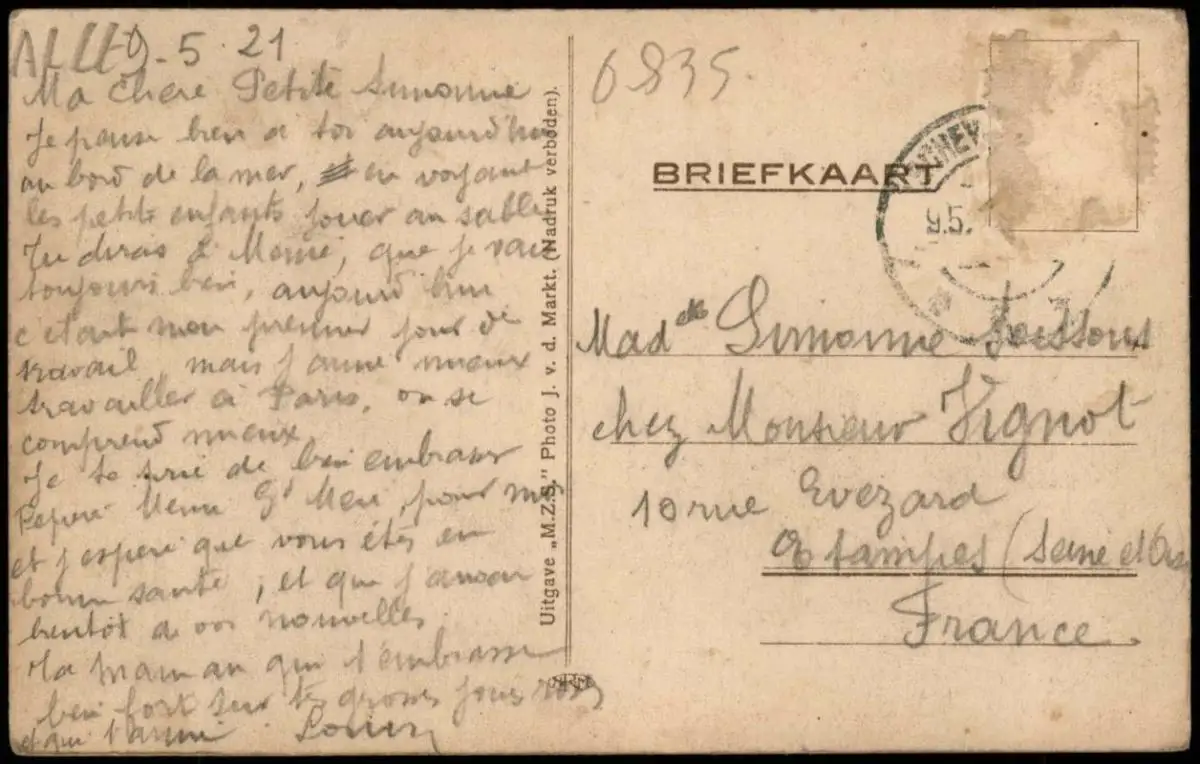 9-5-21
Ma chère Petite Simonne
Je pense bien a toi aujourd'hui
au bord de la mer, en voyant
les petits enfants jouer au sable
Tu diras à Mémé, que je vais
toujours bien, aujourd'hui
c'était mon premier jour de
travail, mais j'aime mieux
travailler à Paris, on se
comprend mieux
Je te prie de bien embrasser
Pépère Mémé Gd Mère, pour moi
et j'espère que vous êtes en
bonne santé, et que j'aurai
bientôt de vos nouvelles.
Ta maman qui t'embrasse
bien fort sur tes grosses joues roses
et qui t'aime
Uitgave „M.Z.S." Photo J. v. d. Markt. (Nadruk verboden).
6835.
BRIEFKAART
9.5.
Madelle Simonne Soissons
chez Monsieur Vignot
10 rue Evezard
Etampes (Seine et Oise
France.